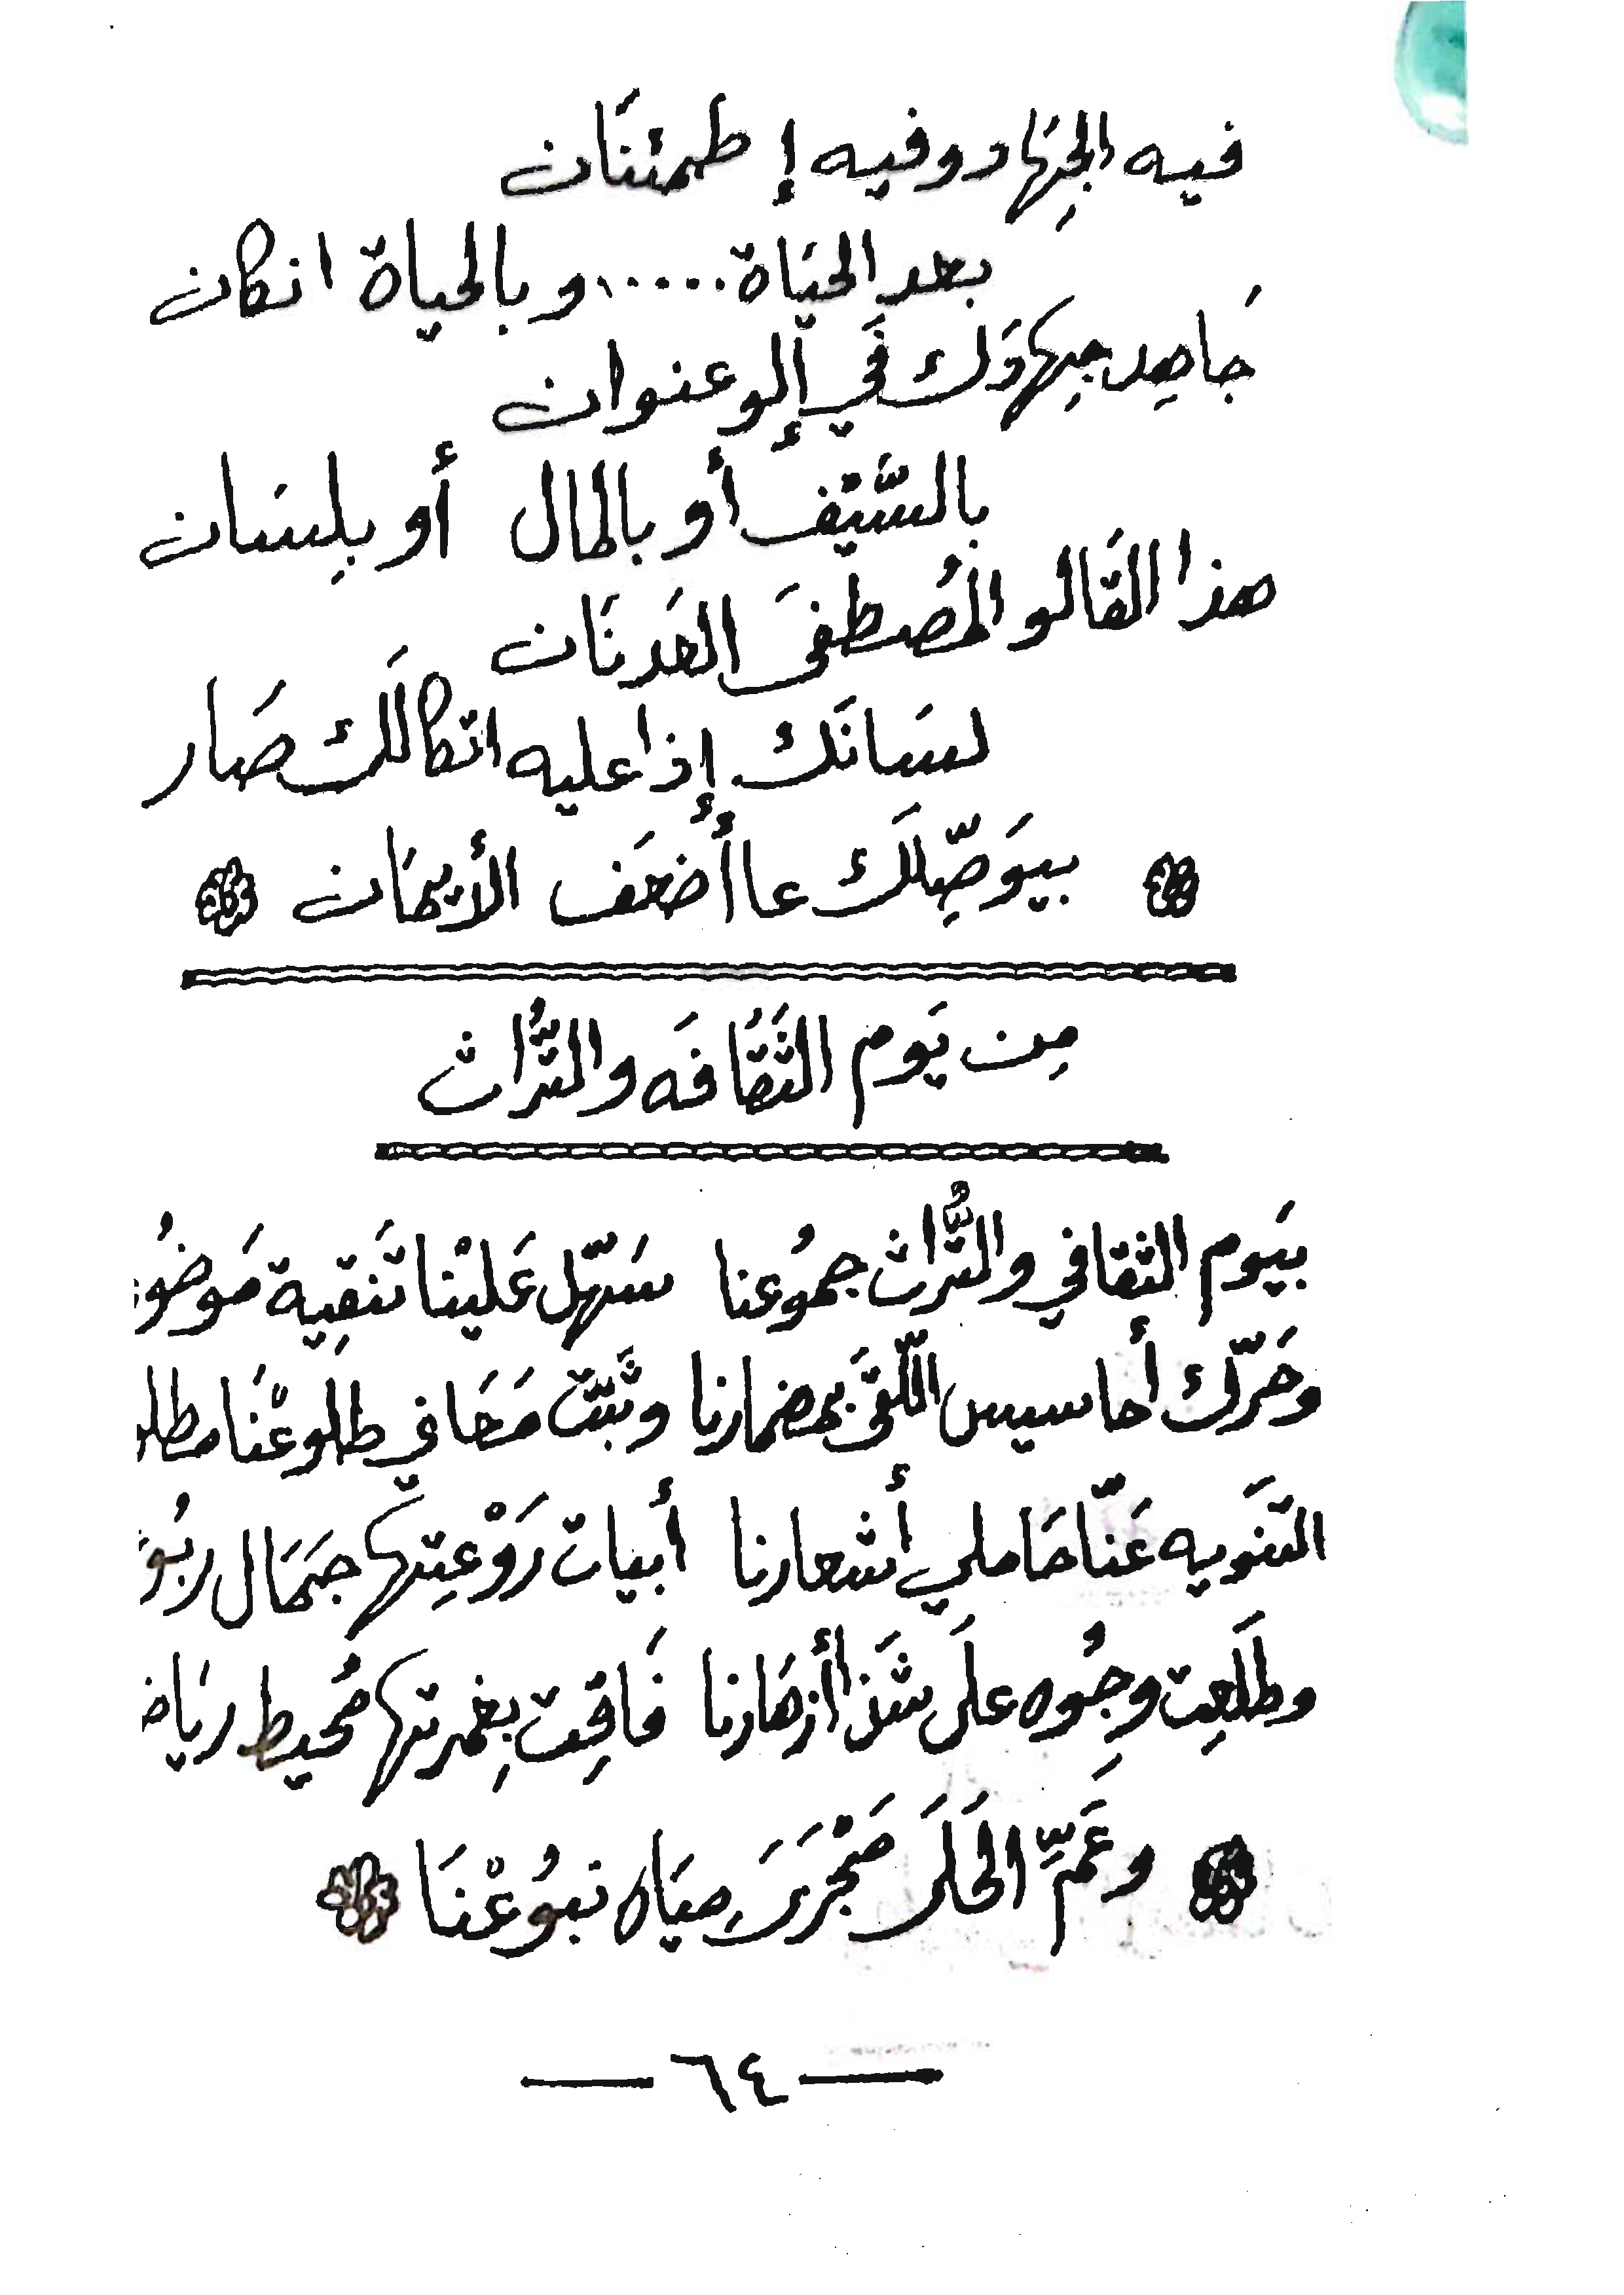 فيه الجِهَاد وفيه إطمئنَان
بعد الحيَاة ..... وبالحياة انكان
جَاهِد جِهادَك في إلو عنوان
بالسَّيْف أو بالمال أو بلِسَان
هذا القَالو المُصطفىَ العَدنَان
لسَانَك إذا عليه اتكالَك صَار
بيوَصِّلَك عا أضعَف الأيمَان
مِن يَوم الثَقَافَه والتُّراث
بيَوم الثقافي والتُّراث جمُوعنا سَهّل عَليْنا تَنقِية
وحَرّك أحاسيس اللّقىَ بمضمارنا وثَبّت مَحَافي طلوعْنَا
التنَويه عَنّا حَاملي أشعارنا أبيات رَوْعِتها جَمَال
وطلَعِت وجُوه علىَ شَذا أزهَارنا فَاقِت بِغمرتها مُحيط
وعَمِّ الحَلىَ مَجْرىَ مِيَاه نبوُعْنَا
— ٦٤ —